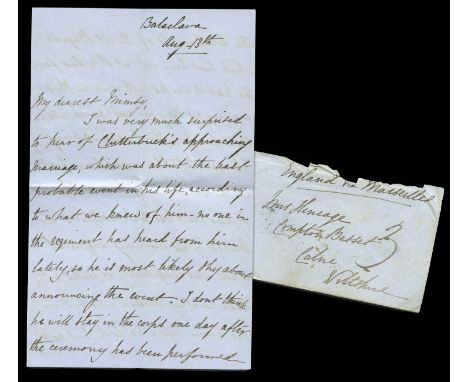 Balaclava
Aug. 13th
My dearest Mimsy,
I was very much surprised
to hear of Clutterbuck's approaching
marriage, which was about the last
probable event in his life, according
to what we knew of him - no one in
the regiment has heard from him
lately, so he is most likely shy about
announcing the event - I dont think
he will stay in the corps one day after
the ceremony has been performed
England via Marseilles
Heneage
Compton Basset
3
Calne
Wiltshire